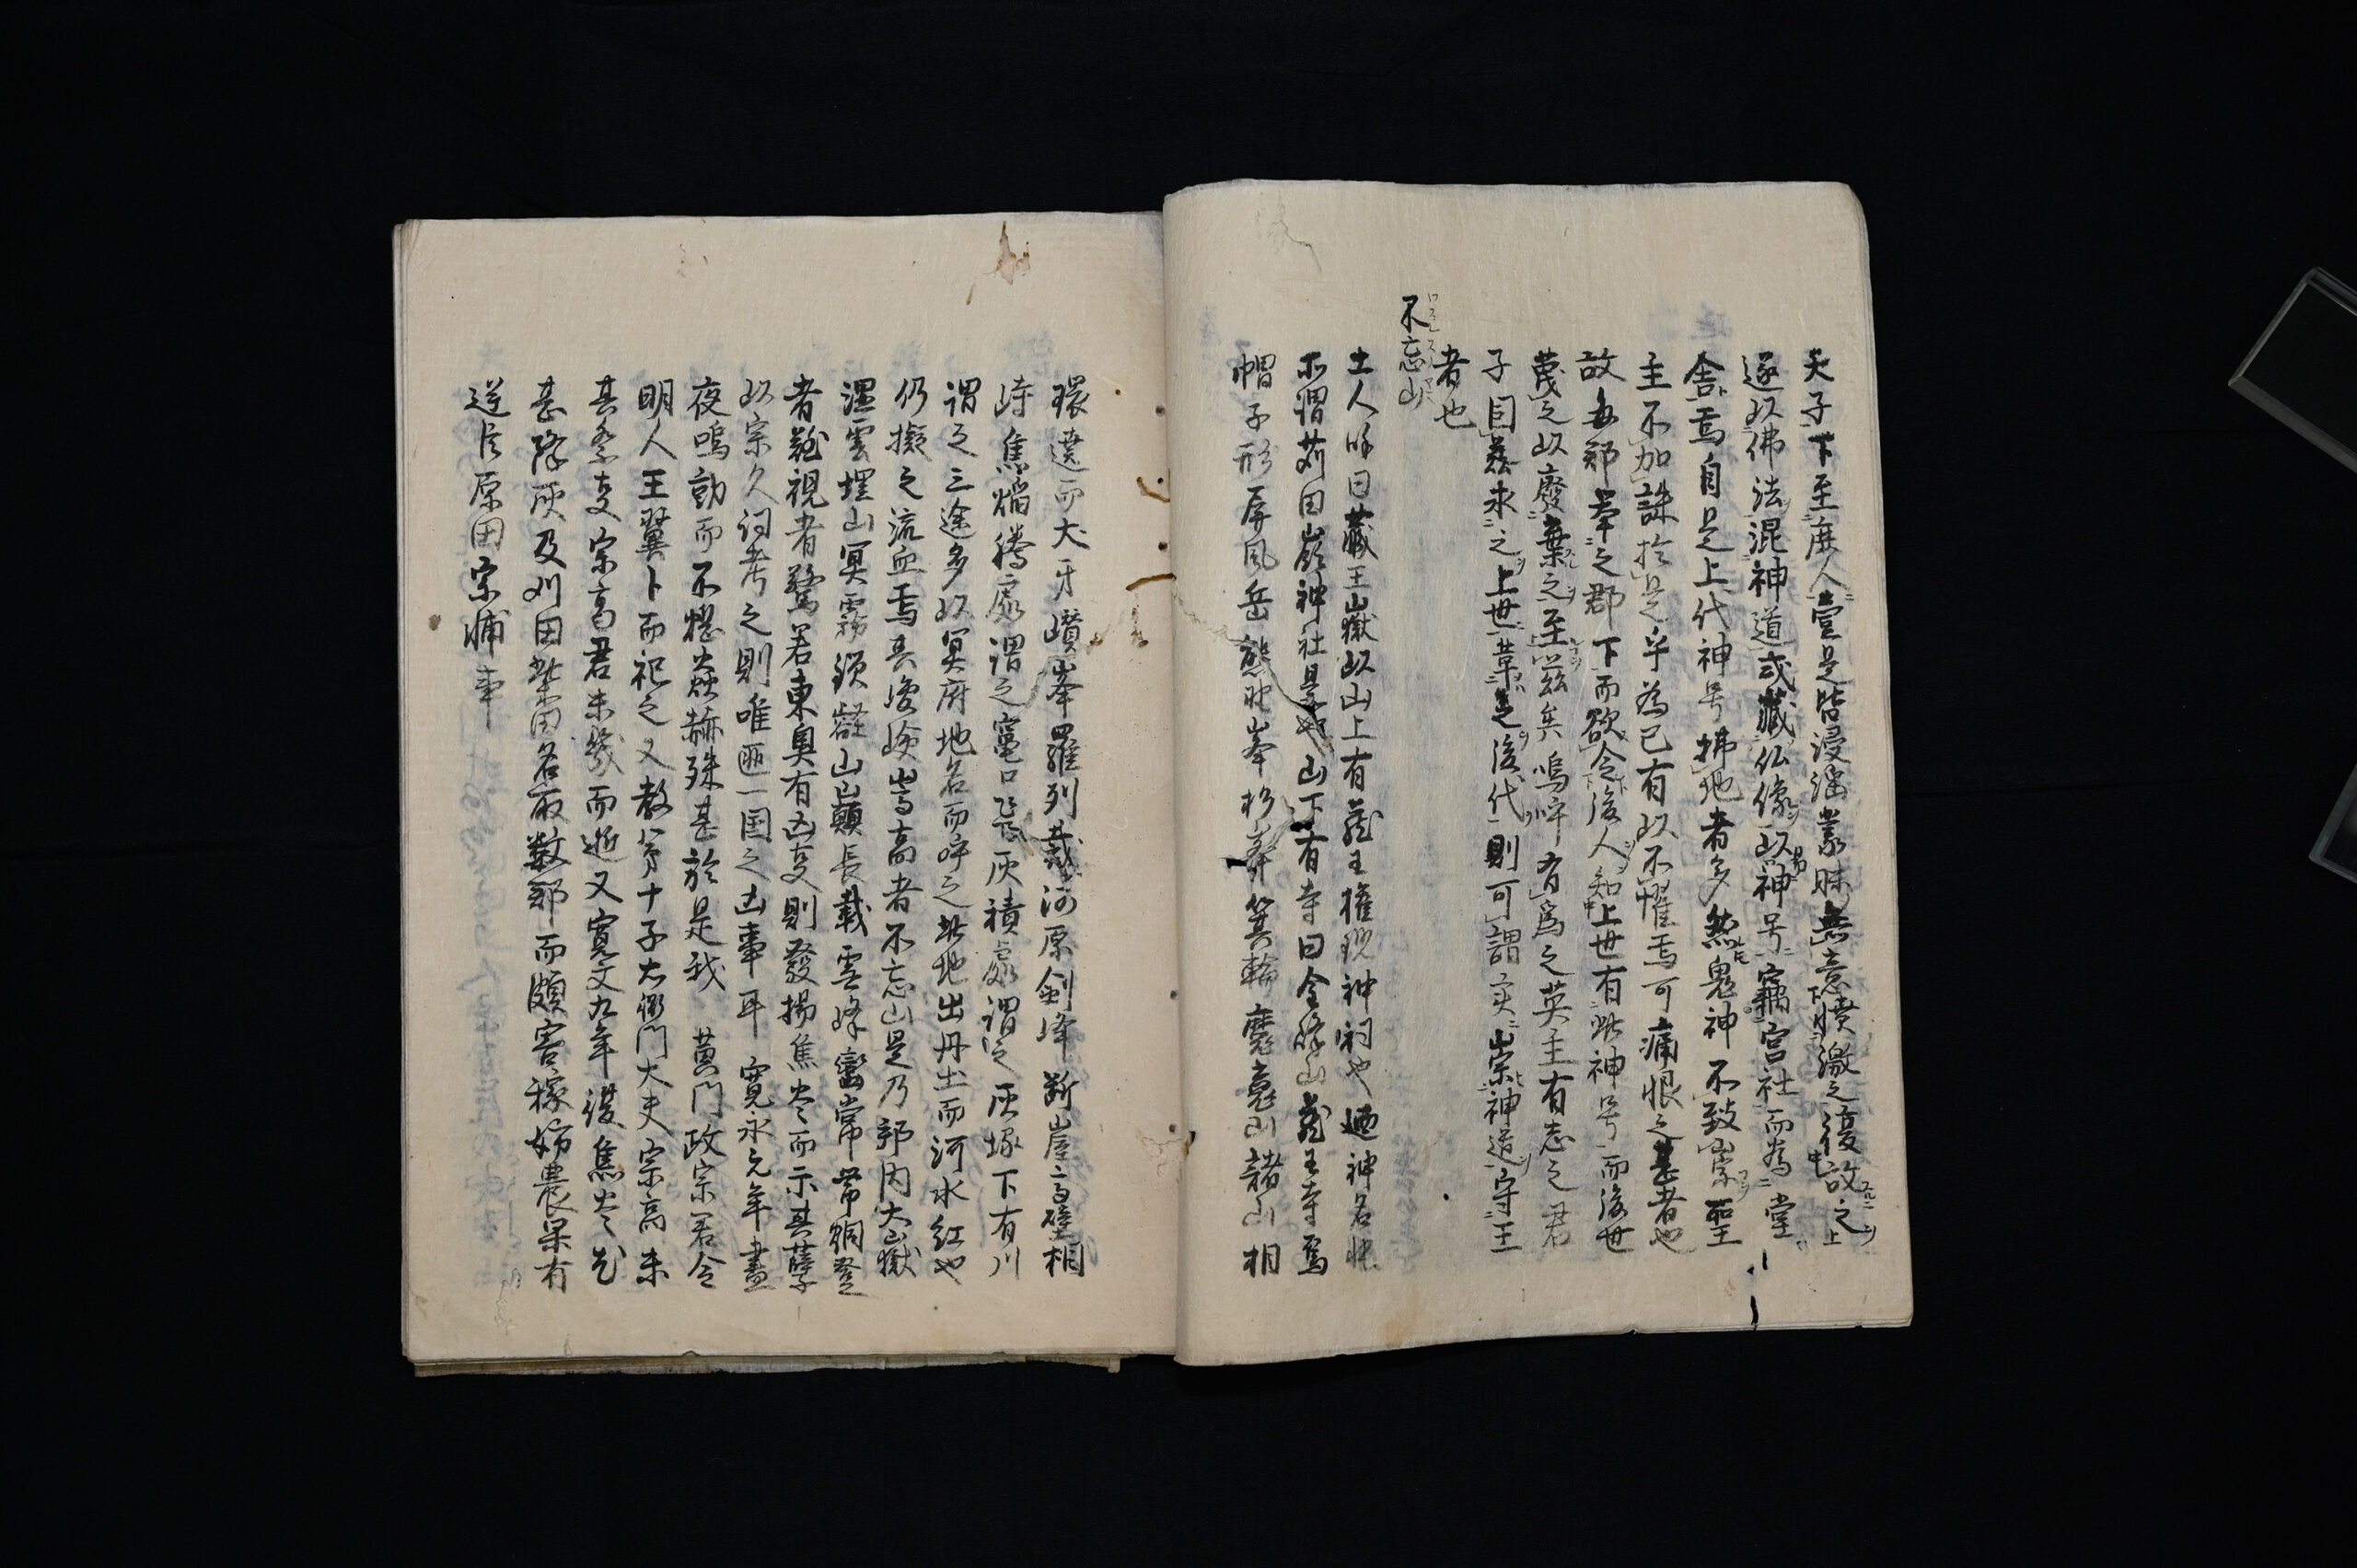 天子下至庶人壹是皆浸淫蒙昧無意憤激之復故之
遂以佛法混神道或藏仏像以易神号竊宮社而為堂
舎焉自是上代神号掃地者多然鬼神不致崇聖
主不加誅於是乎為已有以不懼焉可痛恨之甚者也
故毎郡挙之郡下而欲令後人知上世有此神号而後世
蔑之以廃棄之至茲矣嗚呼有為之英主有志之君
子因茲求之上世革之後代則可謂実崇神道守王
者也
不忘山
土人呼曰蔵王嶽以山上有蔵王権現神祠也廼神名帳
所謂苅田嶺神社是也山下有寺曰金峰山蔵王寺焉
帽子形屏風岳熊野峯杉峯箕輪魔鬼山諸山相
環遶而犬牙巑峯羅列蔵河原剣峰断崖高壁相
峙焦焔騰處謂之竈口飛灰積處謂之灰塚下有川
謂之三途多以冥府地名而呼之此地出丹土而河水紅也
仍擬之流血焉其俊嶮嵩高者不忘山是乃郡内大嶽
湿雲埋山冥霧鎖壑山巓長載雪峰巒常帯烟登
者難視者驚若東奥有凶変則發揚焦炎而示其孽
以宗久詞考之則唯匪一国之凶事耳 寛永元年晝
夜鳴動而不熄炎赫殊甚於是我 黄門政宗君令
明人王翼卜而祀之又教第十子右衛門大夫宗高来
其祭変宗高君未幾而逝又寛文九年謹焦炎
甚降灰及刈田柴田名取数郡而頗害稼妨農果有
逆臣原田宗輔事